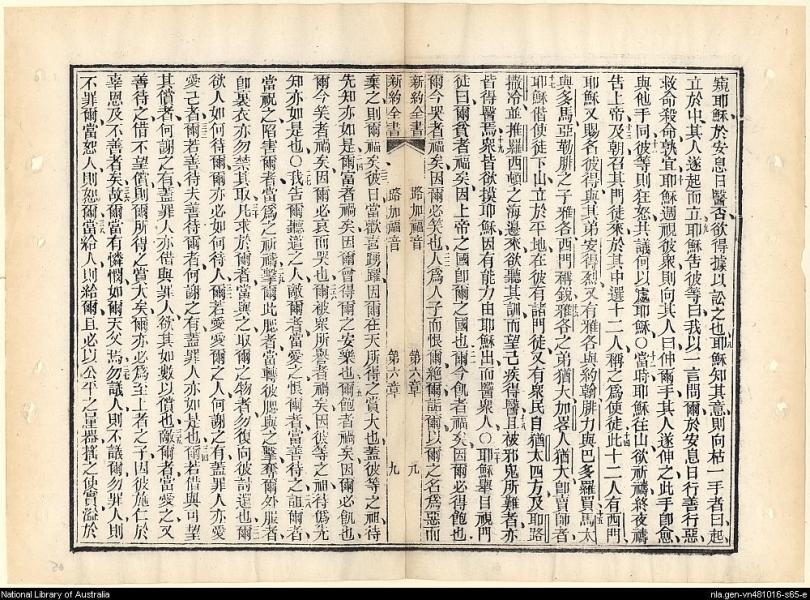 窺耶穌於安息日醫否欲得據以訟之也耶穌知其意則向枯一手者曰起
立於中其人遂起而立耶穌吿彼等曰我以一言問爾於安息日行善行惡
救命殺命孰宜耶穌週視彼眾則向其人曰伸爾手其人遂伸之此手卽愈
與他手同彼等則狂怒共議何以處耶穌○當時耶穌往山欲祈禱終夜禱
吿上帝及朝召其門徒來於其中選十二人稱之爲使徒此十二人有西門
耶穌又賜名彼得與其弟安得烈又有雅各與約翰腓力與巴多羅買馬太
與多馬亞勒腓之子雅各西門稱銳雅各之弟猶大加畧人猶大卽賣師者
耶穌偕使徒下山立於平地在彼有諸門徒又有衆民自猶太四方及耶路
撒冷並推羅西頓之海邊來欲聽其訓而望己疾得醫且被邪鬼所難者亦
皆得醫焉衆皆欲摸耶穌因有能力由耶穌出而醫衆人○耶穌舉目視門
徒曰爾貧者福矣因上帝之國卽爾之國也爾今飢者福矣因爾必得飽也
爾今哭者福矣因爾必笑也人爲人子而恨爾絕爾詬爾以爾之名爲惡而
新約全書 路加福音 第六章 九
新約全書 路加福音 第六章 九
棄之則爾福矣彼日當歡喜踴躍因爾在天所得之賞大也蓋彼等之祖待
先知亦如是爾富者禍矣因爾曾得爾之安樂也爾飽者禍矣因爾必飢也
爾今笑者禍矣因爾必哀而哭也爾被衆所譽者禍矣因彼等之祖待僞先
知亦如是也○我吿爾聽道之人敵爾者當愛之恨爾者當善待之詛爾者
當祝之陷害爾者當爲之祈禱擊爾此腮者當轉彼腮與之擊奪爾外服者
卽裏衣亦勿禁其取凡求於爾者當與之取爾之物者勿復向彼討還也爾
欲人如何待爾爾亦必如何待人爾若愛愛爾之人何謝之有蓋罪人亦愛
愛己者爾若善待夫善待爾者何謝之有蓋罪人亦如是也爾若借與可望
其償者何謝之有蓋罪人亦借與罪人欲其如數以償也敵爾者當愛之又
善待之借不望償則爾所得之賞大矣爾亦必爲至上者之子因彼施仁於
辜恩及不善者矣故爾當有憐憫如爾天父焉勿議人則不議爾勿罪人則
不罪爾當恕人則恕爾當給人則給爾且必以公平之量器搖之使實溢於
National Library of Australia
nla.gen-vn481016-s65-e